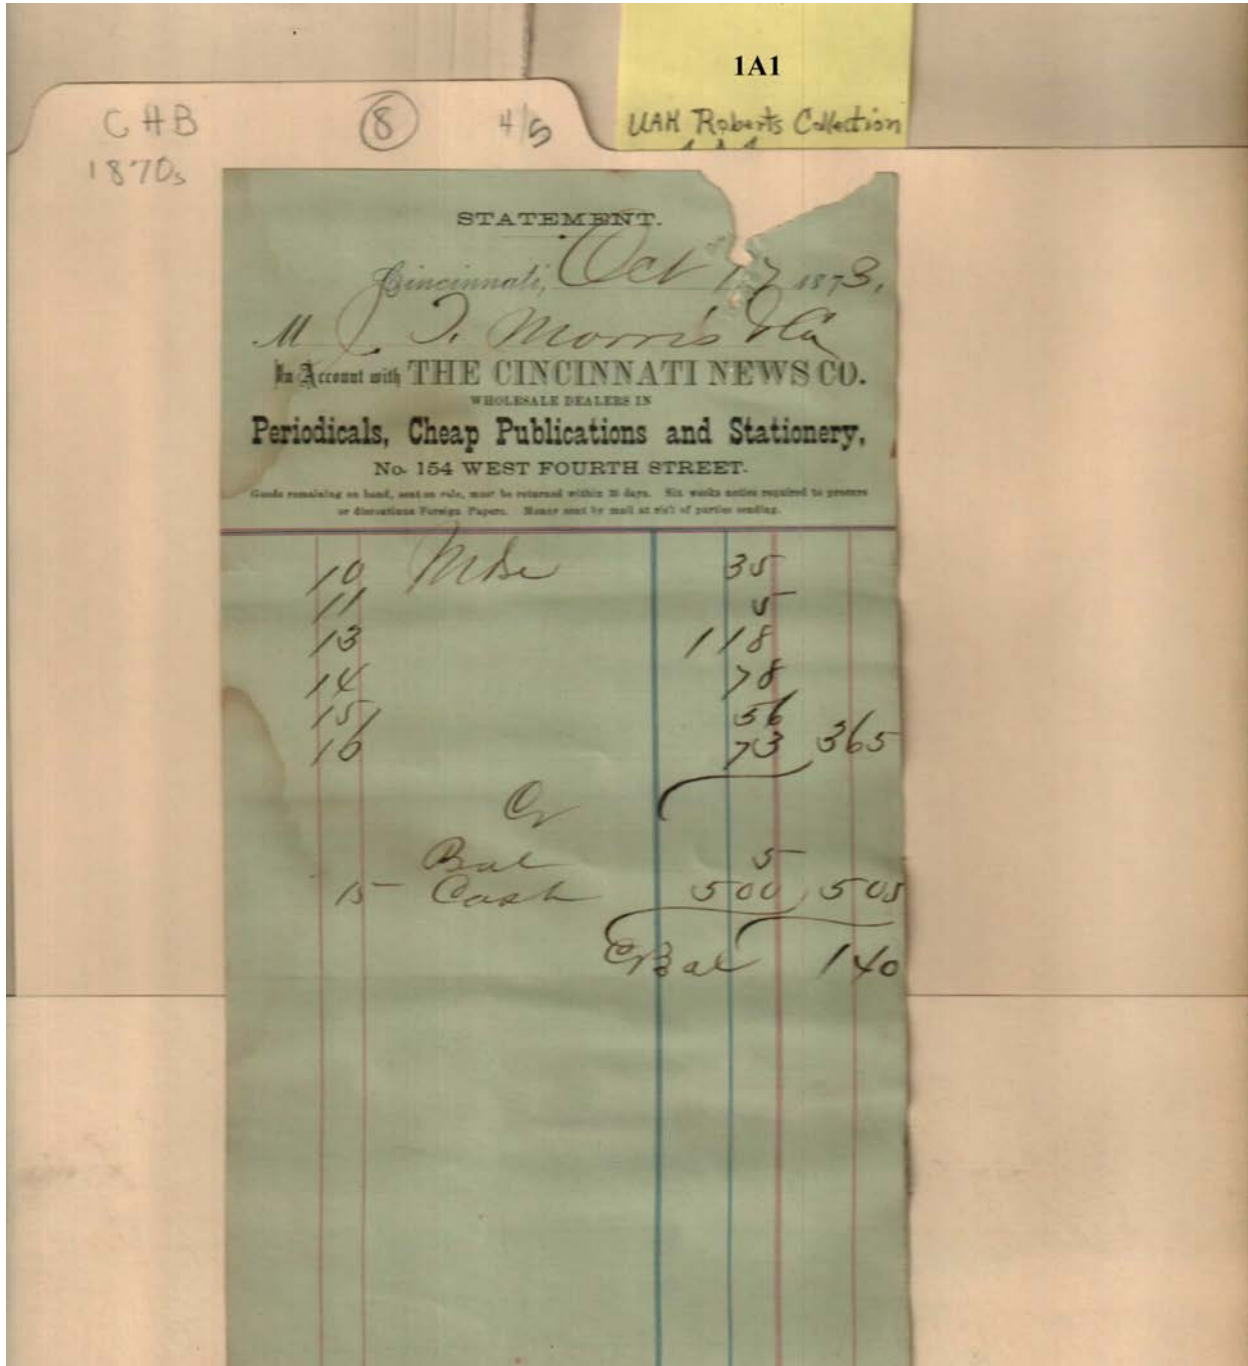 1A1
CHB 8 4/5 UAH Roberts Collection
1870s
STATEMENT.
Cincinnati, Oct 17 1873.
M J. T. Morris & Co
In Account with THE CINCINNATI NEWS CO.
WHOLESALE DEALERS IN
Periodicals, Cheap Publications and Stationery,
No. 154 WEST FOURTH STREET.
Goods remaining on hand, sent on sale, must be returned within 30 days. Six weeks notice required to procure
or discontinue Foreign Papers. Money sent by mail at risk of parties sending.
10 Mdse 35
11 5
13 118
14 78
15 56
16 73 365
Cr
Bal 5
15 Cash 500 505
Cr Bal 140